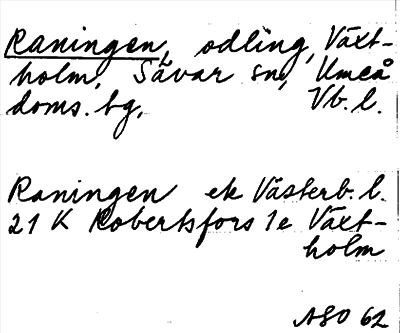 Raningen, odling, Växt-
holm, Sävar sn, Umeå
doms. tg, Vb. l.
Raningen ek Västerb. l.
21 K Robertsfors 1e Växt-
holm
ASO 62